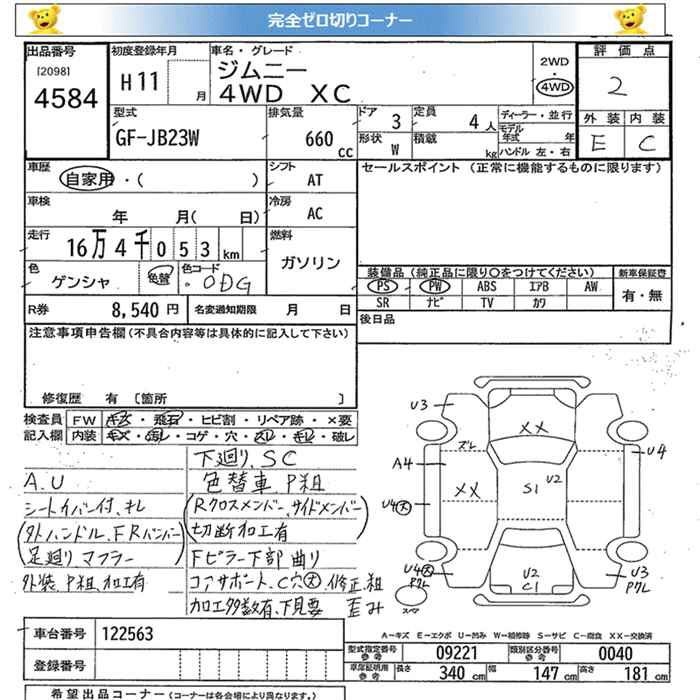 完全ゼロ切りコーナー
出品番号 初度登録年月 車名・グレード 評価点
[2098] 4584 H11 月 ジムニー 4WD XC 2WD 4WD 2
型式 GF-JB23W 排気量 660 cc ドア 3 定員 4人 ディーラー・並行 外装 内装
形状 W 積載 kg モデル年式 年 ハンドル 左・右 E C
車歴 自家用・( ) シフト AT セールスポイント (正常に機能するものに限ります)
車検 年 月( 日) 冷房 AC
走行 16万4千053km 燃料 ガソリン
色 ゲンシャ 色替 色コード ODG
装備品(純正品に限り○をつけてください) 新車保証書
PS PW ABS エアB AW 有・無
SR ナビ TV カワ
R券 8,540円 名変通知期限 月 日
後日品
注意事項申告欄(不具合内容等は具体的に記入して下さい)
修復歴 有 〔箇所 〕
検査員 FW キズ・飛石・ヒビ割・リペア跡・×要
記入欄 内装 キズ・汚レ・コゲ・穴・スレ・キレ・破レ
A.U
シートイバー付、キレ
(外ハンドル、FRバンパー)
足廻り、マフラー
外装、P粗、加工有
下廻り、SC
色替車 P粗
(Rクロスメンバー、サイドメンバー)
切断加工有
Fピラー下部 曲り
コアサポート、C穴大、修正、粗
加工多数有、下見要 歪み
U3
U3
ズレ
XX
U4
A4
XX
S1
U2
U4大
U4大
Pクレ
U2
C1
U3
Pクレ
スペア
車台番号 122563
登録番号
A-キズ E-エクボ U-凹み W-補修跡 S-サビ C-腐食 XX-交換済
型式指定番号 参考 09221 類別区分番号 参考 0040
車庫証明用 参考 長さ 340cm 幅 147cm 高さ 181cm
希望出品コーナー(コーナーは各会場により異なります。)